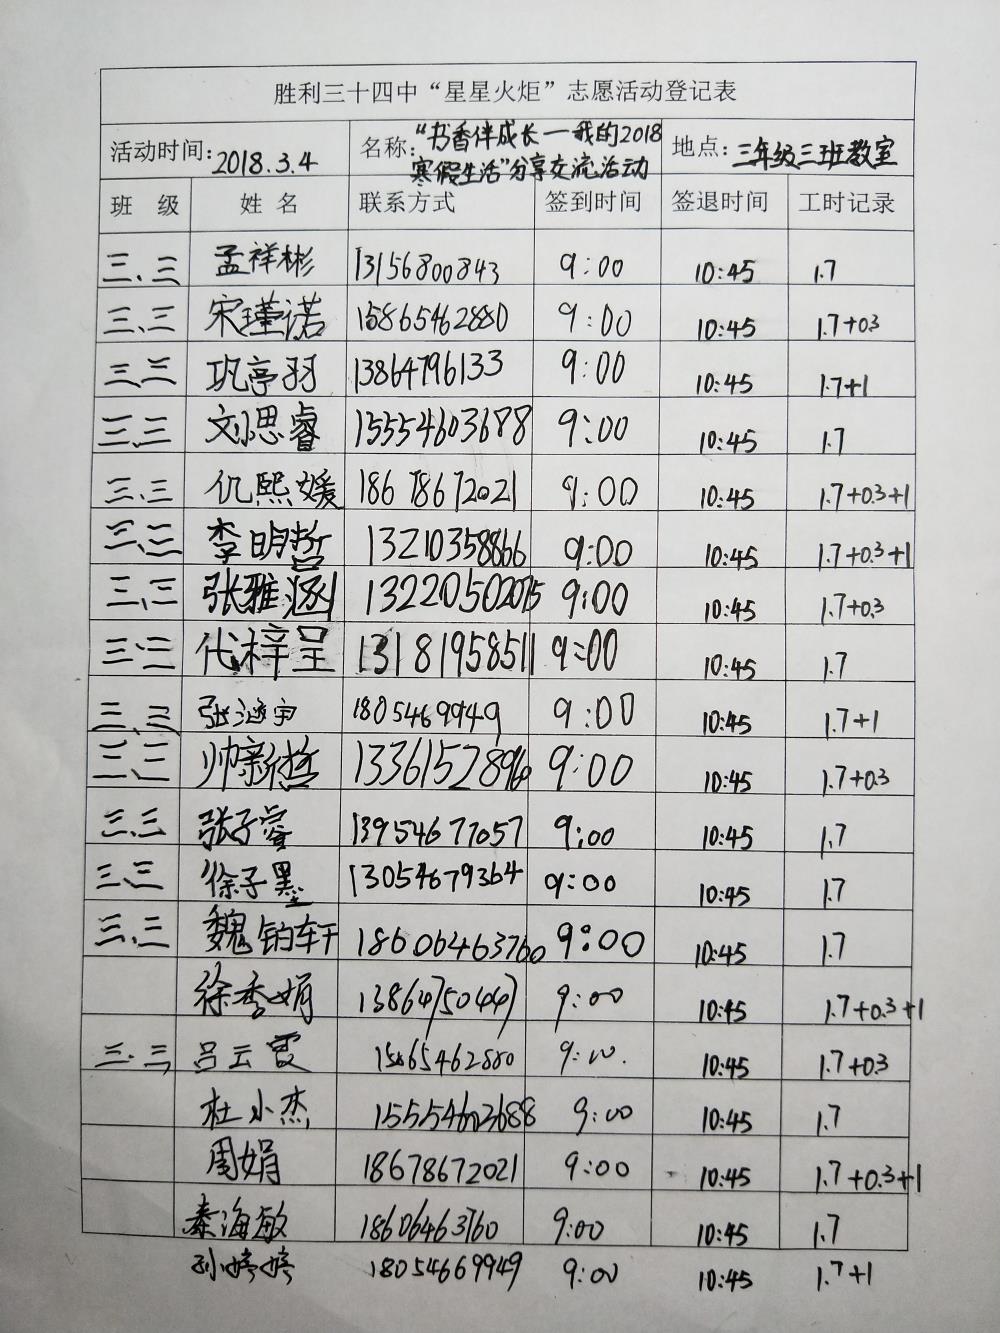 胜利三十四中“星星火炬”志愿活动登记表
活动时间:2018.3.4 名称:“书香伴成长一我的2018寒假生活”分享交流活动 地点:三年级三班教室
班 级 姓 名 联系方式 签到时间 签退时间 工时记录
三、三 孟祥彬 13156800843 9:00 10:45 1.7
三、三 宋瑾诺 15865462880 9:00 10:45 1.7+0.3
三、三 巩亭羽 13864796133 9:00 10:45 1.7+1
三、三 刘思睿 15554603688 9:00 10:45 1.7
三、三 仉熙媛 18678672021 9:00 10:45 1.7+0.3+1
三、三 李明哲 13210358866 9:00 10:45 1.7+0.3+1
三、三 张雅涵 13220502075 9:00 10:45 1.7+0.3
三、三 代梓呈 13181958511 9:00 10:45 1.7
三、三 张涵宇 18054669949 9:00 10:45 1.7+1
三、三 帅新哲 13361528960 9:00 10:45 1.7+0.3
三、三 张子睿 13954677057 9:00 10:45 1.7
三、三 徐子墨 13054679364 9:00 10:45 1.7
三、三 魏钧轩 18606463760 9:00 10:45 1.7
徐秀娟 13864750447 9:00 10:45 1.7+0.3+1
三、三 吕云霞 15865462880 9:00. 10:45 1.7+0.3
杜小杰 15554603688 9:00 10:45 1.7
周娟 18678672021 9:00 10:45 1.7+0.3+1
秦海敏 18606463760 9:00 10:45 1.7
孙婷婷 18054669949 9:00 10:45 1.7+1